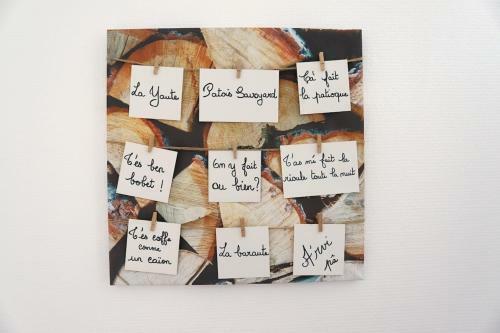 La Yaute
Patois Savoyard
Cà fait
la patioque
T'es ben
bobet !
On y fait
ou bien?
T'as mé fait la
rioule toute la nuit
T'es coffe
comme
un caïon
La baraute
A'rvi
pâ